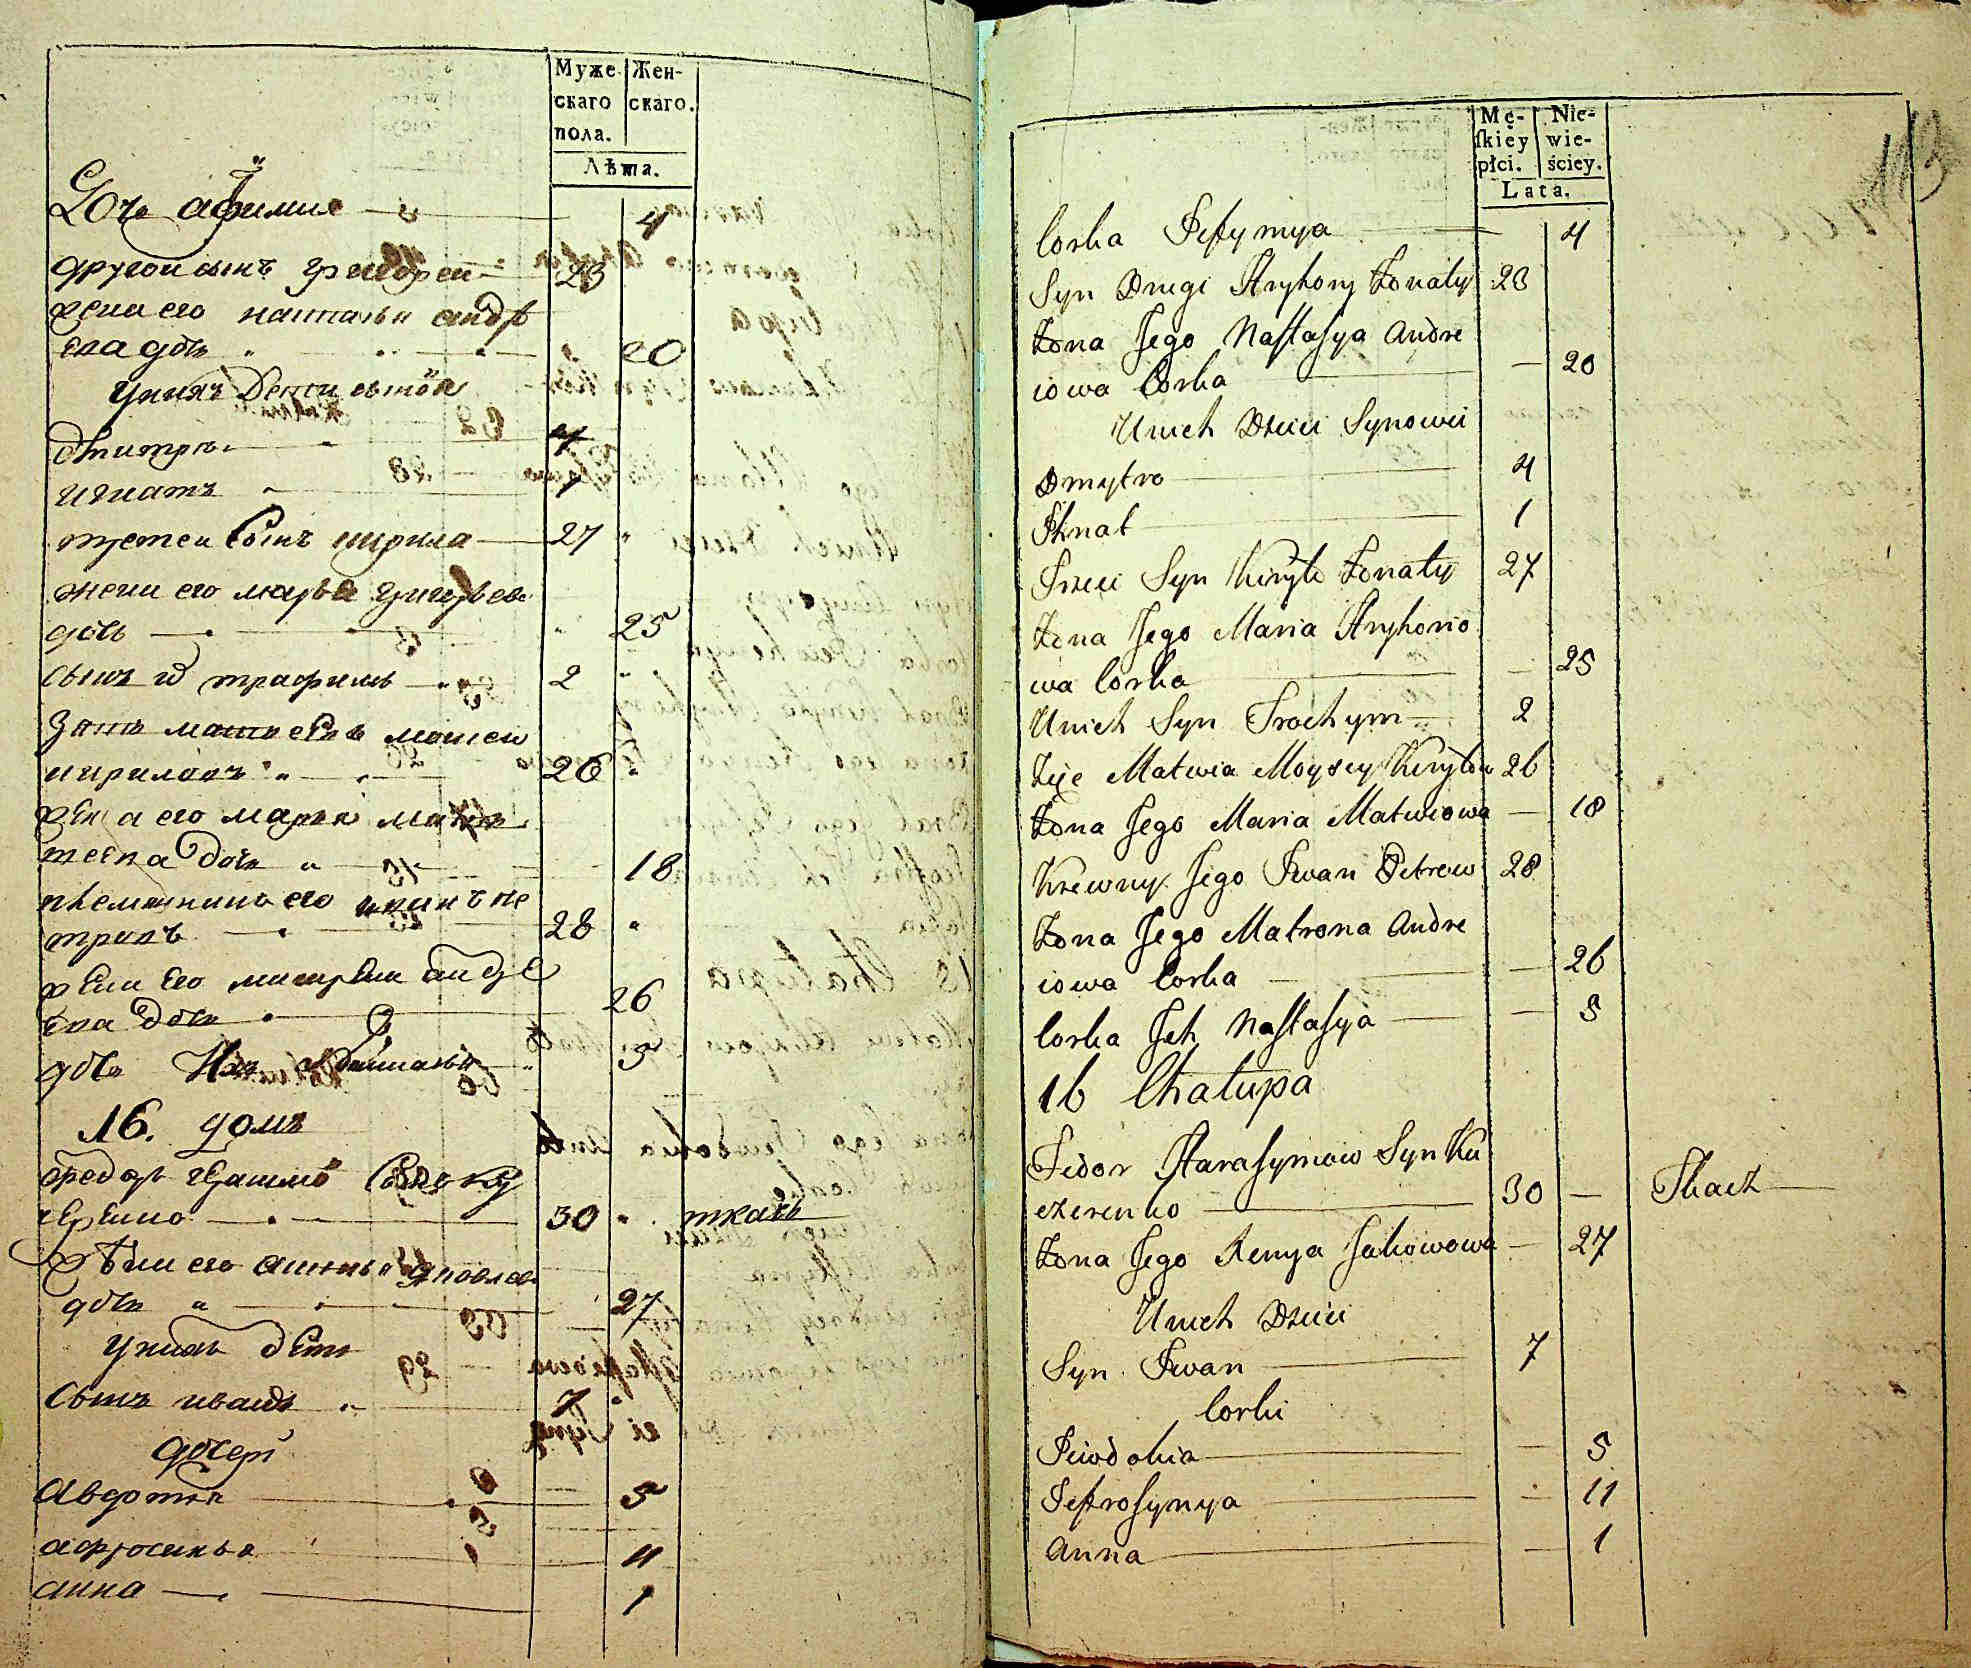 Муже
скаго
пола.
Жен-
скаго.
Лѣта.
Дочь афимия 4
другои сынъ григореи 23
жена его настасья андр
еева дочь 20
у нихъ дети сынов
дмитръ 4
игнатъ 1
третеи сынъ кирила 27
жена его марья григорьева
дочь 25
сынъ трафимъ 2
зять матвеевъ мосеи
кириловъ 26
жена его марья мат
веева дочь 18
племянникъ его иванъ пе
тровъ 28
жена его матрена андре
ева дочь 26
дочь их настасья 5
16. домъ
федоръ сынъ ку
черенко 30 ткачь
жена его яковлева
дочь 27
у нихъ дети
сынъ иванъ 7
дочери
авдотья 5
афросинья 11
анна 1
Mę-
skiey
płci.
Nie-
wie-
ściey.
Lata.
Corka Jefymya 4
Syn Drugi Hryhory Żonaty 23
Żona Jego Nastasya Andre
iowa Corka 20
U nich Dzieci Synowei
Dmytro 4
Ihnat 1
Trzeci Syn Kiryło Żonaty 27
Żona Jego Maria Hryhorio
wa Corka 25
U nich Syn Trochym 2
Zięc Matwia Moysey Kiryłow 26
Żona Jego Maria Matwiowa 18
Krewny Jego Iwan Petrow 28
Żona Jego Matrona Andre
iowa Corka 26
Corka Jch Nastasya 5
16 Chałupa
Fedor Harasymow Syn Ku
czerenko 30 Tkacz
Żona Jego Jakowowa 27
U nich Dzieci
Syn Iwan 7
Corki
Jewdokia 5
Jefrosynya 11
Anna 1